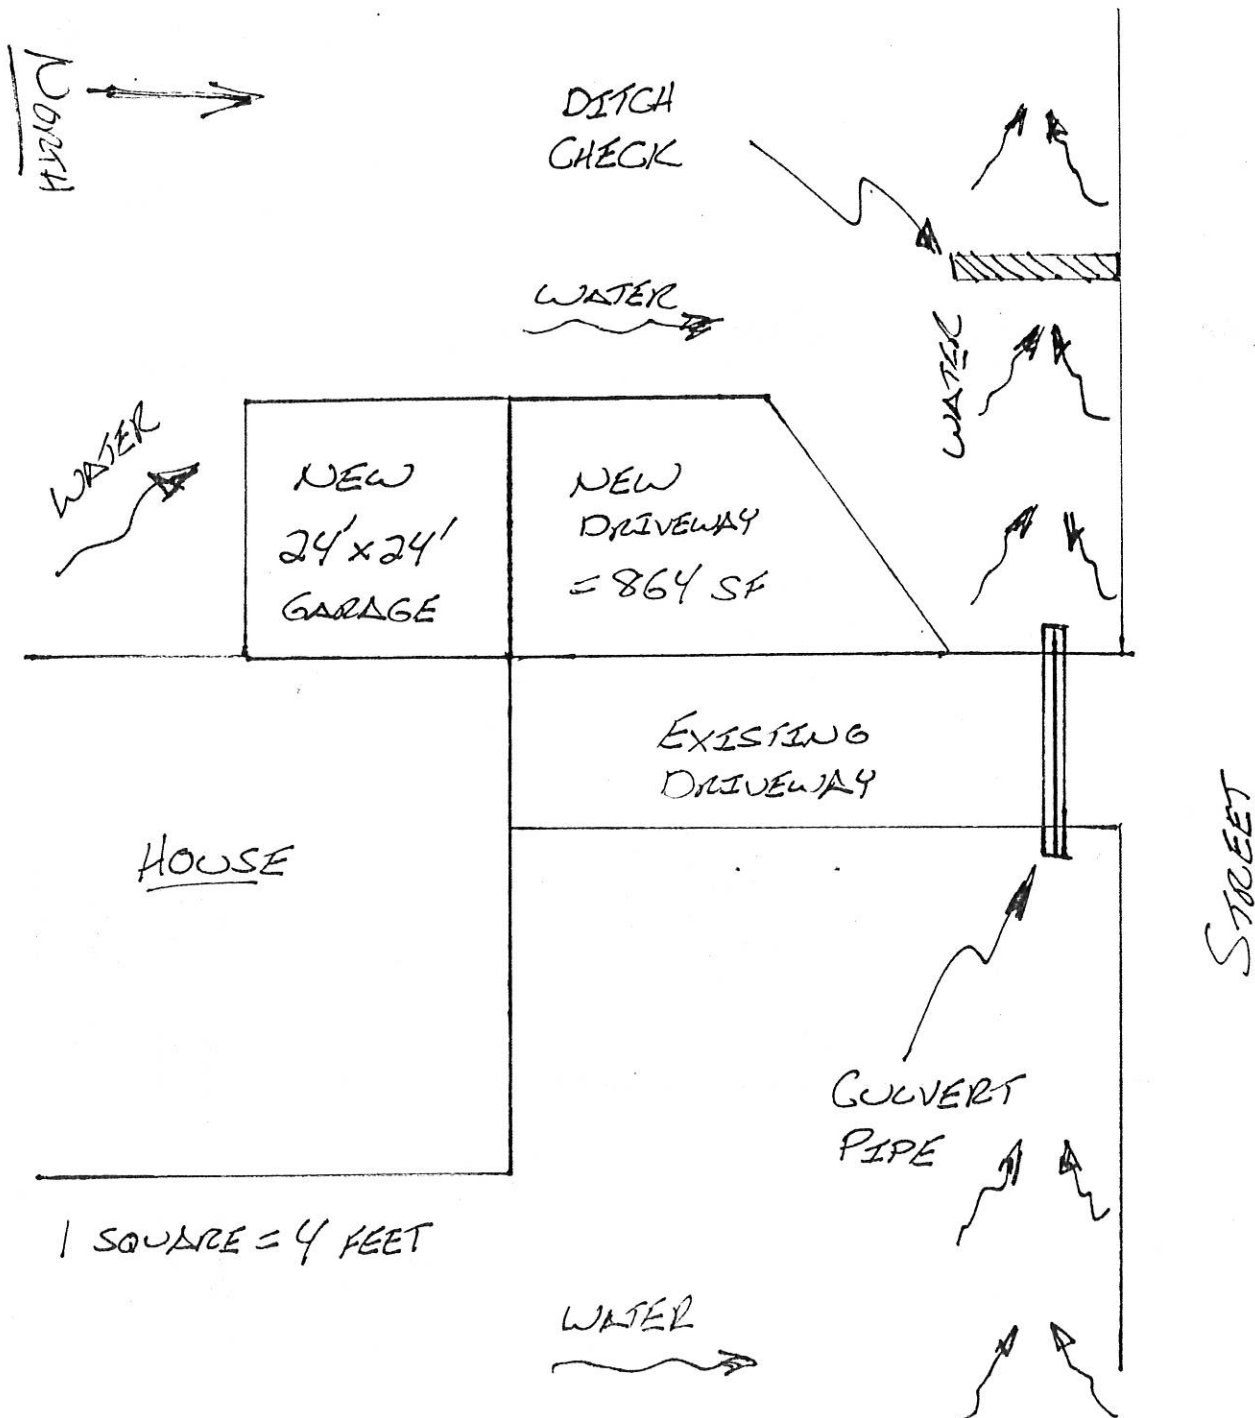 NORTH
DITCH
CHECK
WATER
WATER
WATER
NEW
24'x24'
GARAGE
NEW
DRIVEWAY
=864 SF
EXISTING
DRIVEWAY
HOUSE
STREET
CULVERT
PIPE
1 SQUARE=4 FEET
WATER